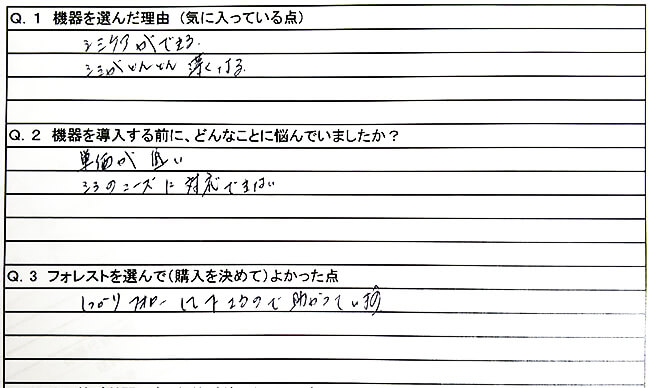 Q. 1 機器を選んだ理由 (気に入っている点)
シミケアができる.
シミがどんどん薄くなる.
Q. 2 機器を導入する前に、どんなことに悩んでいましたか？
単価が低い
シミのニーズに対応できない
Q. 3 フォレストを選んで(購入を決めて)よかった点
しっかりフォローしてくれるので助かっています